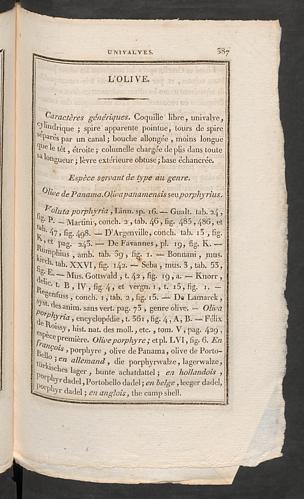 UNIVALVES. 387
L'OLIVE.
Caractères génériques. Coquille libre, univalve,
cylindrique ; spire apparente pointue, tours de spire
séparés par un canal ; bouche allongée, moins longue
que le têt, étroite ; columelle chargée de plis dans toute
sa longueur ; lèvre extérieure obtuse ; base échancrée.
Espèce servant de type au genre.
Olive de Panama. Oliva panamensis seu porphyrius.
Voluta porphyria, Linn. sp. 16. — Gualt. tab. 24,
fig. P. — Martini, conch. 2, tab. 46, fig. 485, 486, et
tab. 47, fig. 498. — D'Argenville, conch. tab. 13, fig.
K, et pag. 245. — De Favannes, pl. 19, fig. K. —
Rumphius, amb. tab. 39, fig. 1. — Bonnani, mus.
kirch. tab. XXVI, fig. 142. — Seba, mus. 3, tab. 53,
fig. E. — Mus. Gottwald, t. 42, fig. 19, a. — Knorr,
delic. t. B, IV, fig. 4, et vergn. 1, t. 15, fig. 1. —
Regenfuss, conch. 1, tab. 2, fig. 15. — De Lamarck,
syst. des anim. sans vert. pag. 73, genre olive. — Oliva
porphyria, encyclopédie, t. 361, fig. 4, A, B. — Félix
de Roissy, hist. nat. des moll., etc., tom. V, pag. 429,
espèce première. Olive porphyre ; et pl. LVI, fig. 6. En
françois, porphyre, olive de Panama, olive de Porto-
Bello ; en allemand, die porphyrwalze, lagerwalze,
türkisches lager, bunte achatdattel ; en hollandois,
porphyr dadel, Portobello dadel ; en belge, leeger dadel,
porphyr dadel ; en anglois, the camp shell.